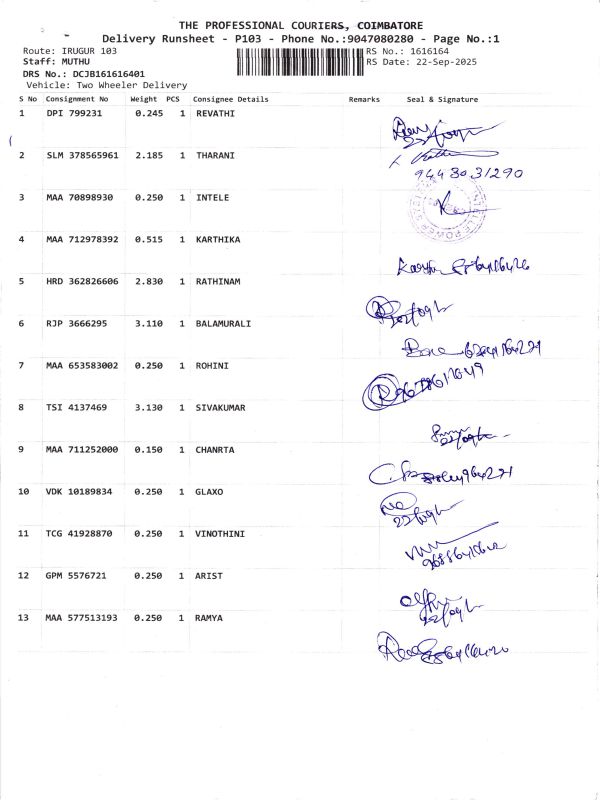 THE PROFESSIONAL COURIERS, COIMBATORE
Delivery Runsheet - P103 - Phone No.:9047080280 - Page No.:1
Route: IRUGUR 103
RS No.: 1616164
Staff: MUTHU
RS Date: 22-Sep-2025
DRS No.: DCJB161616401
Vehicle: Two Wheeler Delivery
S No Consignment No Weight PCS Consignee Details Remarks Seal & Signature
1 DPI 799231 0.245 1 REVATHI
2 SLM 378565961 2.185 1 THARANI
94430 31290
3 MAA 70898930 0.250 1 INTELE
4 MAA 712978392 0.515 1 KARTHIKA
5 HRD 362826606 2.830 1 RATHINAM
6 RJP 3666295 3.110 1 BALAMURALI
7 MAA 653583002 0.250 1 ROHINI
8 TSI 4137469 3.130 1 SIVAKUMAR
9 MAA 711252000 0.150 1 CHANRTA
10 VDK 10189834 0.250 1 GLAXO
11 TCG 41928870 0.250 1 VINOTHINI
12 GPM 5576721 0.250 1 ARIST
13 MAA 577513193 0.250 1 RAMYA